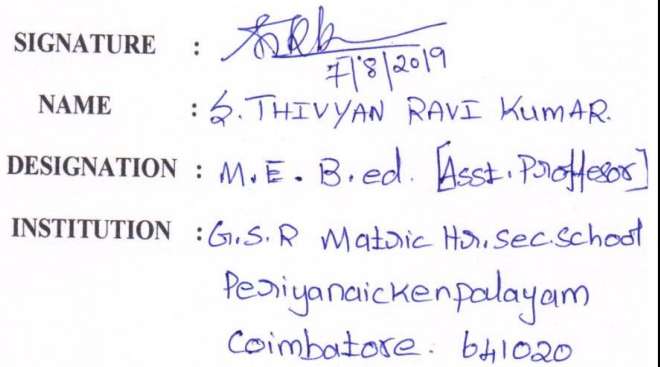 SIGNATURE :
7/8/2019
NAME : S. THIVYAN RAVI KUMAR.
DESIGNATION : M.E. B.ed. [Asst. Proffesor]
INSTITUTION : G.S.R Matric Hr. Sec. School
Periyanaickenpalayam
Coimbatore. 641020